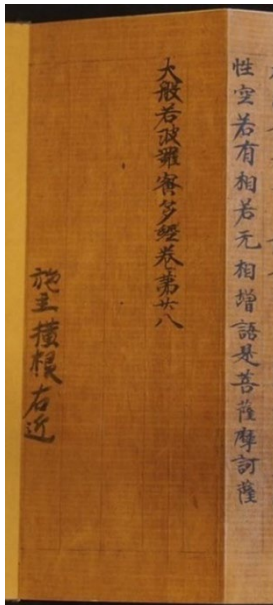 性空若有相若无相增語是菩薩摩訶薩
大般若波羅蜜多經卷第廿八
施主横根右近